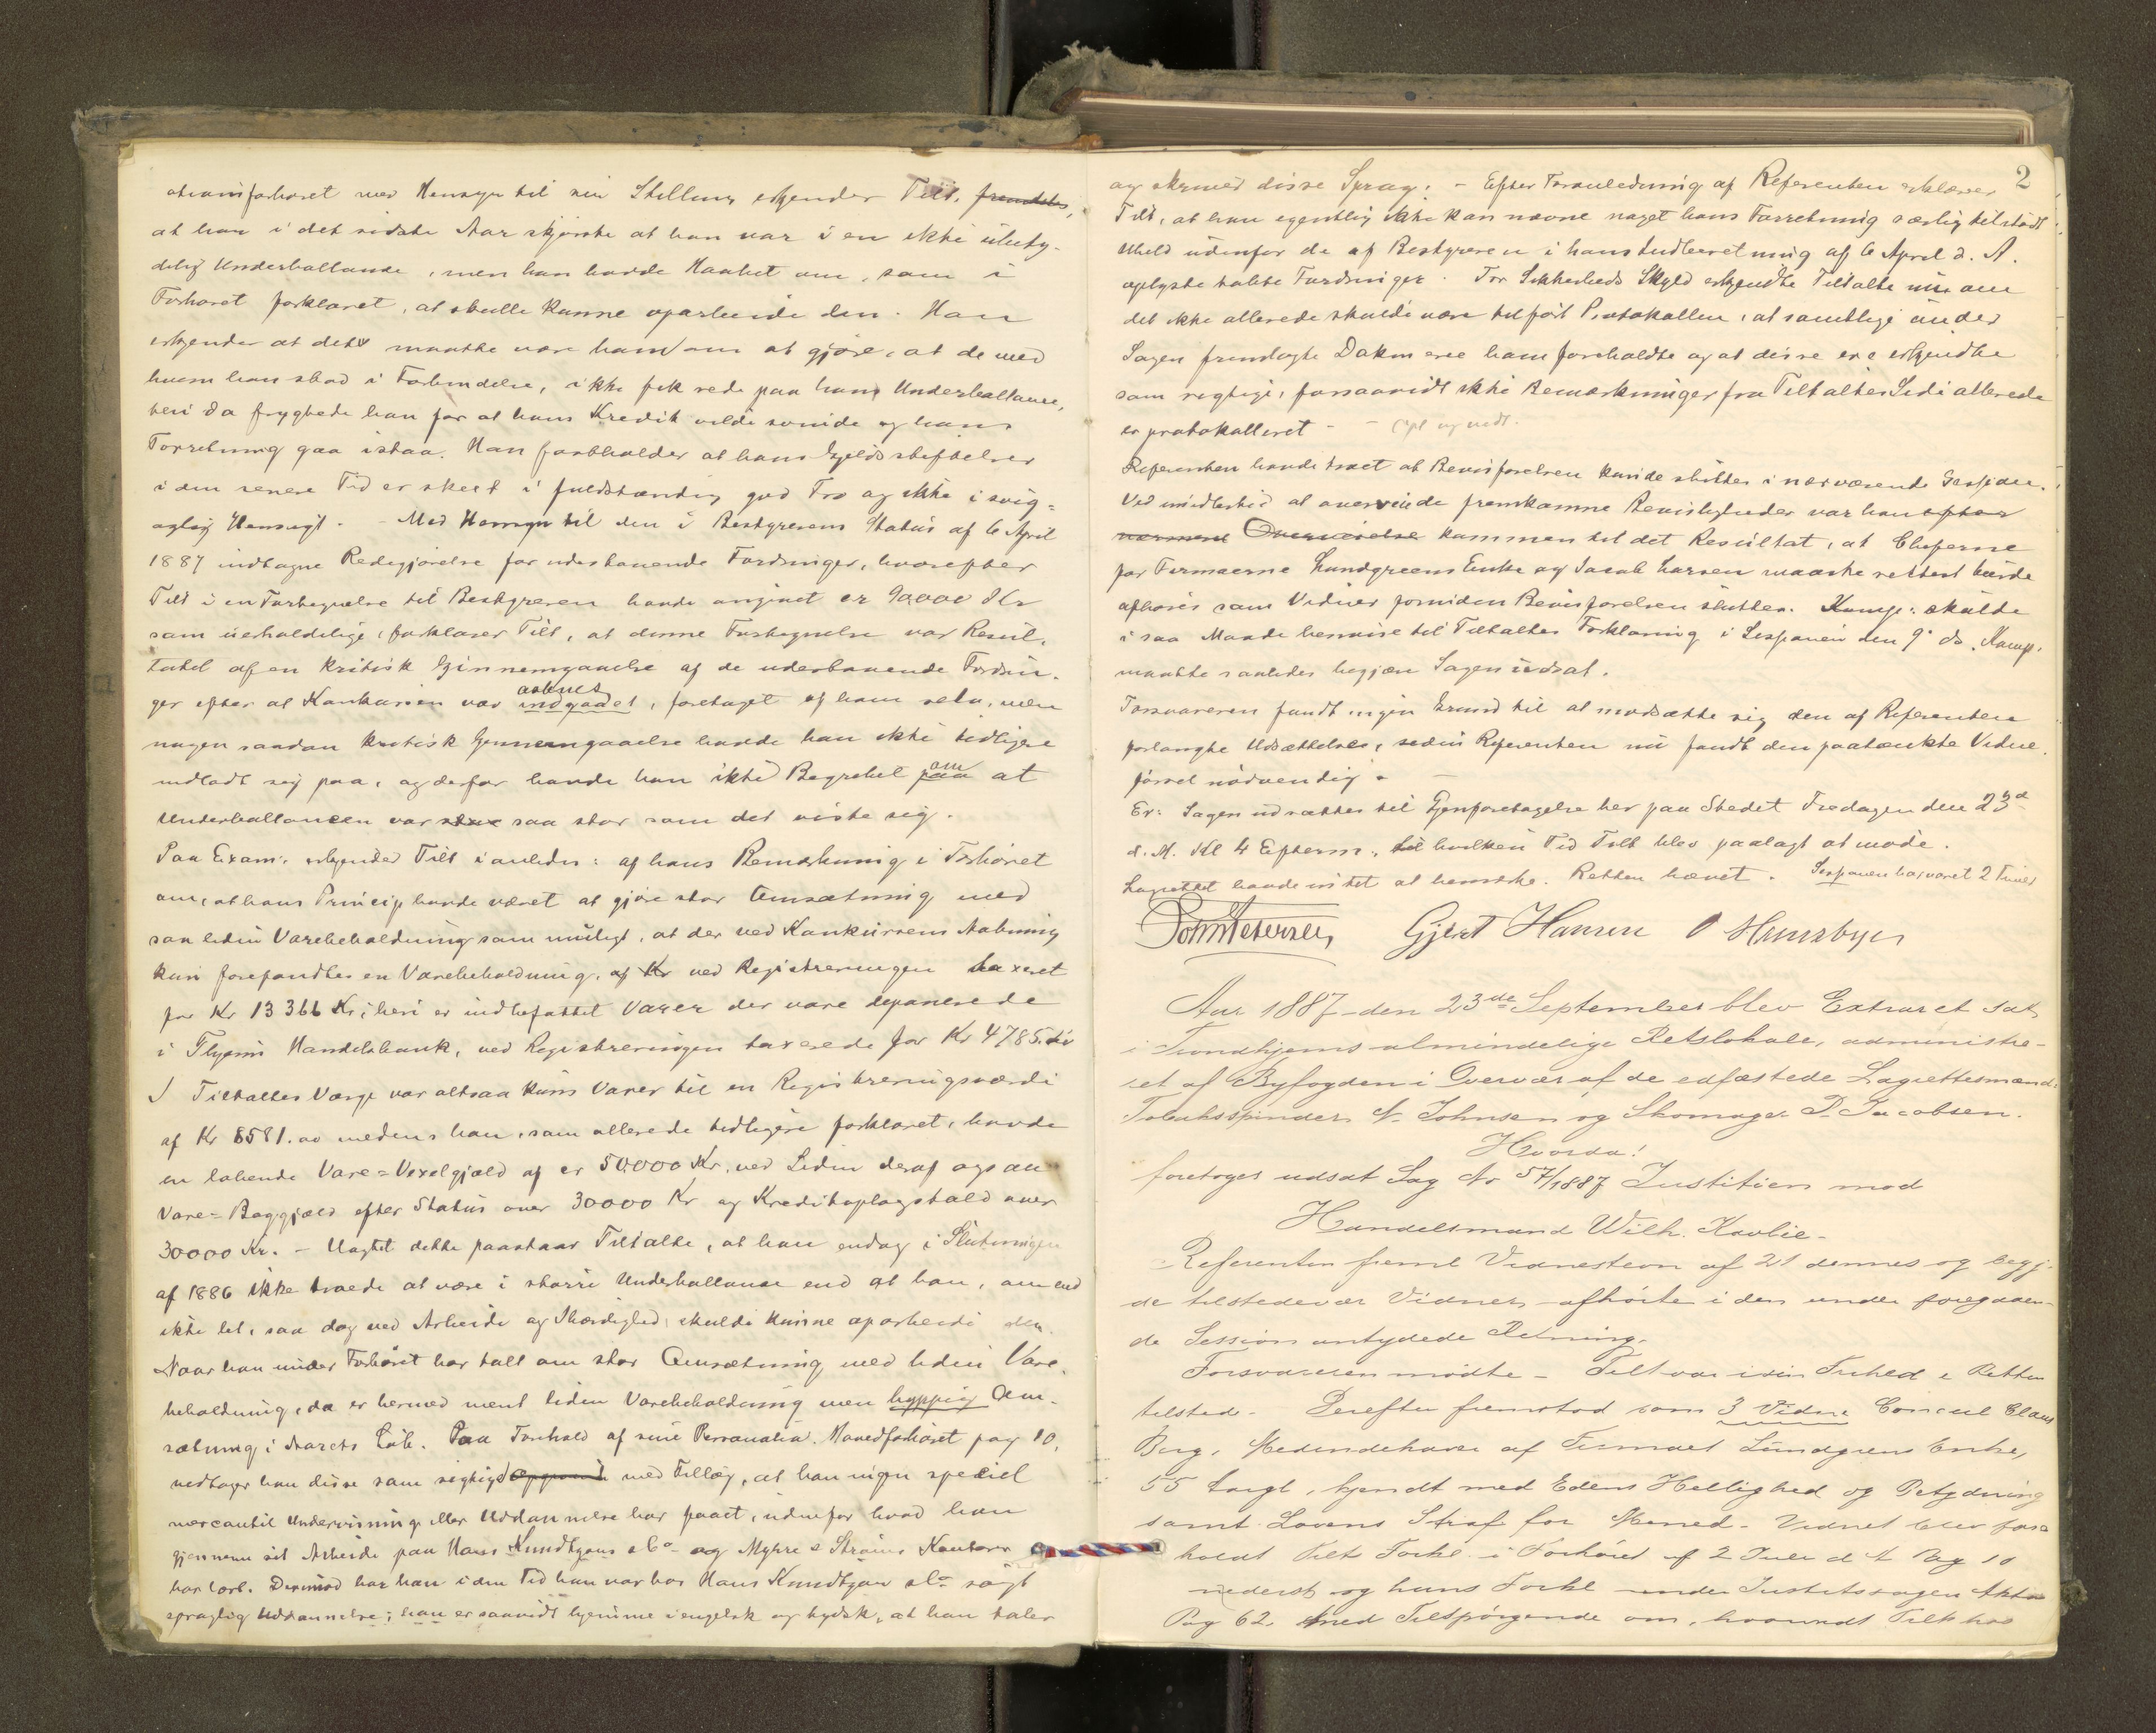 med Hensyn til sin Stilling erkjender Tilt. fremdeles,
at han i det sidste Aar skjønte at han var i en ikke ubety-
delig Underballance, men han havde Haabet om, som i
Forhøret forklaret, at skulle kunne oparbeide den. Han
erkjender at det maatte være ham om at gjøre, at de med
hvem han stod i Forbindelse, ikke fik rede paa hans Underballance,
da frygtede han for at hans Kredit vilde svinde og hans
Forretning gaa istaa. Han fastholder at hans Gjeldsstiftelser
i den senere Tid er skeet i fuldstændig god Tro og ikke i svig-
agtig Hensigt. - Med Hensyn til den i Bestyrerens Status af 6 April
1887 indtagne Redegjørelse for udestaaende Fordringer, hvorefter
Tilt i en Fortegnelse til Bestyreren havde angivet ca 90000 Kr
som uerholdelige, forklarer Tilt, at denne Fortegnelse var Resul-
tatet af en kritisk Gjennemgaaelse af de udestaaende Fordrin-
ger efter at Konkursen var indgaaet aabnet, foretaget af ham selv, men
nogen saadan kritisk Gjennemgaaelse havde han ikke tidligere
indladt sig paa, og derfor havde han ikke Begrebet paa om at
Underballancen var saa stor som det viste sig.
Paa Exam. erkjender Tilt i anledn: af hans Bemærkning i Forhøret
om, at hans Princip havde været at gjøre stor Omsætning med
saa liden Varebeholdning som muligt, at der ved Konkursens Aabning
kun forefandtes en Varebeholdning, af Kr ved Registreringen taxeret
for Kr 13 366 Kr; heri er indbefattet Varer der vare deponerede
i Thjems Handelsbank, ved Registreringen taxerede for Kr 4785.
I Tiltaltes Værge var altsaa kuns Varer til en Registreringsværdi
af Kr 8581. medens han, som allerede tidligere forklaret, havde
en løbende Vare=Vexelgjæld af ca 50000 Kr, ved Siden deraf ogsaa
Vare=Boggjæld efter Status over 30000 Kr og Kreditoplagsgjæld over
30000 Kr. - Uagtet dette paastaar Tiltalte, at han endog i Slutningen
af 1886 ikke troede at være i større Underballance end at han, om end
ikke let, saa dog ved Arbeide og Ihærdighed, skulde kunne oparbeide den.
Naar han under Forhøret har talt om stor Omsætning med liden Vare-
beholdning, da er hermed ment liden Varebeholdning men hyppig Om-
sætning i Aarets Løb. Paa Forhold af sine Personalia. Hovedforhøret pag 10,
vedtager han disse som rigtige med Tillæg, at han ingen speciel
mercantil Undervisning eller Uddannelse har faaet, udenfor hvad han
gjennem sit Arbeide paa Hans Knudtzons & Co og Myhre & Strøms Kontorer
har lært. Derimod har han i den Tid han var hos Hans Knudtzon & Co søgt
sproglig Uddannelse; han er saavidt hjemme i engelsk og tydsk, at han taler
2
og skriver disse Sprog. - Efter Foranledning af Referenten erklærer
Tilt, at han egentlig ikke kan nævne noget hans Forretning særlig tilstødt
Uheld udenfor de af Bestyreren i hans Indberetning af 6 April d. A.
oplyste tabte Fordringer. For Sikkerheds Skyld erkjendte Tiltalte nu om
det ikke allerede skulde være tilført Protokollen, at samtlige under
Sagen fremlagte Dokm ere ham foreholdte og at disse ere erkjendte
som rigtige, forsaavidt ikke Bemærkninger fra Tiltaltes Side allerede
er protokolleret - - opl og vedt.
Referenten havde troet at Bevisførelsen kunde sluttes i nærværende Session.
Ved imidlertid at overveie de fremkomne Bevisligheder var han efter
nærmere Overveielse kommen til det Resultat, at Cheferne
for Firmaerne Lundgreens Enke og Jacob Larsen maaske rettest burde
afhøres som Vidner forinden Bevisførelsen sluttes. Komp: skulde
i saa Maade henvise til Tiltaltes Forklaring i Sessionen den 9' ds. Komp.
maatte saaledes begjære Sagen udsat.
Forsvareren fandt ingen Grund til at modsætte sig den af Referenten
forlangte Udsættelse, siden Referenten nu fandt den paatænkte Vidne-
førsel nødvendig. -
Er: Sagen udsættes til Gjenforetagelse her paa Stedet Fredagen den 23d
d. M. Kl 4 Efterm., til hvilken Tid Tilt blev paalagt at møde.
Lagrettet havde intet at bemærke. Retten hævet. Sessionen har varet 2 Timer
Gjert Hansen
Aar 1887 den 23de September blev Extraret sat
i Trondhjems almindelige Retslokale, administre-
ret af Byfogden i Overvær af de edfæstede Lagrettesmænd.
Tobaksspinder N. Johnsen og Skomager P. Jacobsen.
Hvorda!
foretoges udsat Sag No 57/1887 Justitien mod
Handelsmand Wilh. Kavlie -
Referenten freml Vidnestevn af 21 dennes og begj-
de tilstedevær Vidner afhørte i den under foregaaen-
de Session antydede Retning.
Forsvareren mødte - Tilt var i sin Frihed i Retten
tilstede. Derefter fremstod som 3 Vidne Consul Claus
Berg, Medindehaver af Firmaet Lundgrens Enke,
55 Aar gl, kjendt med Edens Hellighed og Betydning
samt Lovens Straf for Mened. Vidnet blev fore-
holdt Tilts Forkl. i Forhøret af 2 Juli d A Pag 10
nederst og hans Forkl under Justitssagen Akten
Pag 62, med Tilspørgende om, hvorvidt Tilt hos